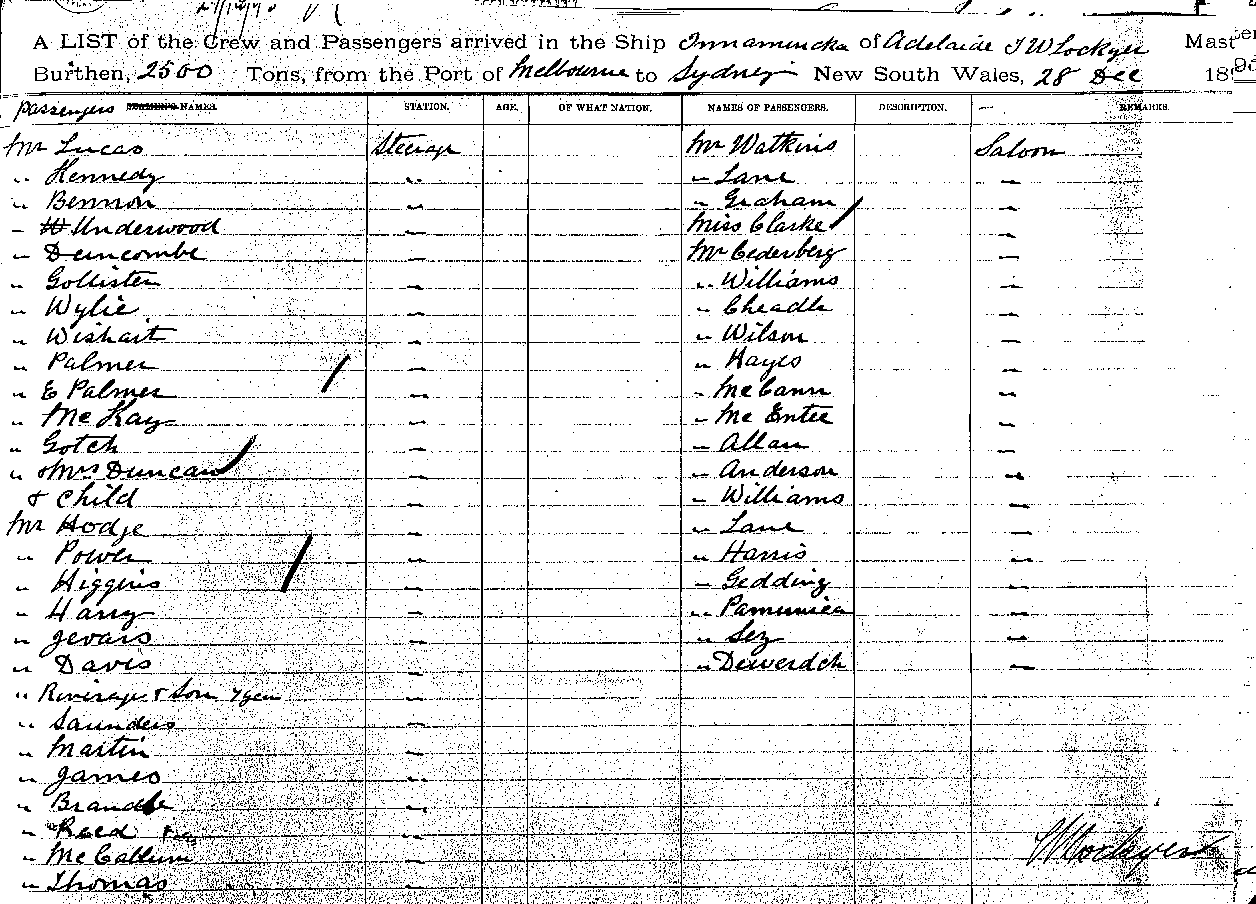 A LIST of the Crew and Passengers arrived in the Ship Innamincka of Adelaide J W Lockyer Mast
Burthen, 2500 Tons, from the Port of Melbourne to Sydney New South Wales, 28 Dec 18
Passengers NAMES. STATION. AGE. OF WHAT NATION. NAMES OF PASSENGERS. DESCRIPTION. REMARKS.
Mr Lucas Steerage Mr Watkins Saloon
" Kennedy " " Lane "
" Bennon " " Graham "
" Underwood " Miss Clarke "
" Duncombe " Mr Cederberg "
" Gollister " " Williams "
" Wylie " " Cheadle "
" Wishart " " Wilson "
" Palmer " " Hayes "
" E Palmer " " McCann "
" McKay " " McEntee "
" Gotch " " Allan "
" & Mrs Duncan " " Anderson "
& Child " " Williams "
Mr Hodge " " Lane "
" Power " " Harris "
" Higgins " " Gedding "
" Harry " "
" Jevais " " Sez "
" Davis " "
" & Son 7 "
" Saunders "
" Martin "
" James "
" Brandle "
" Reed "
" McCallum "
" Thomas "